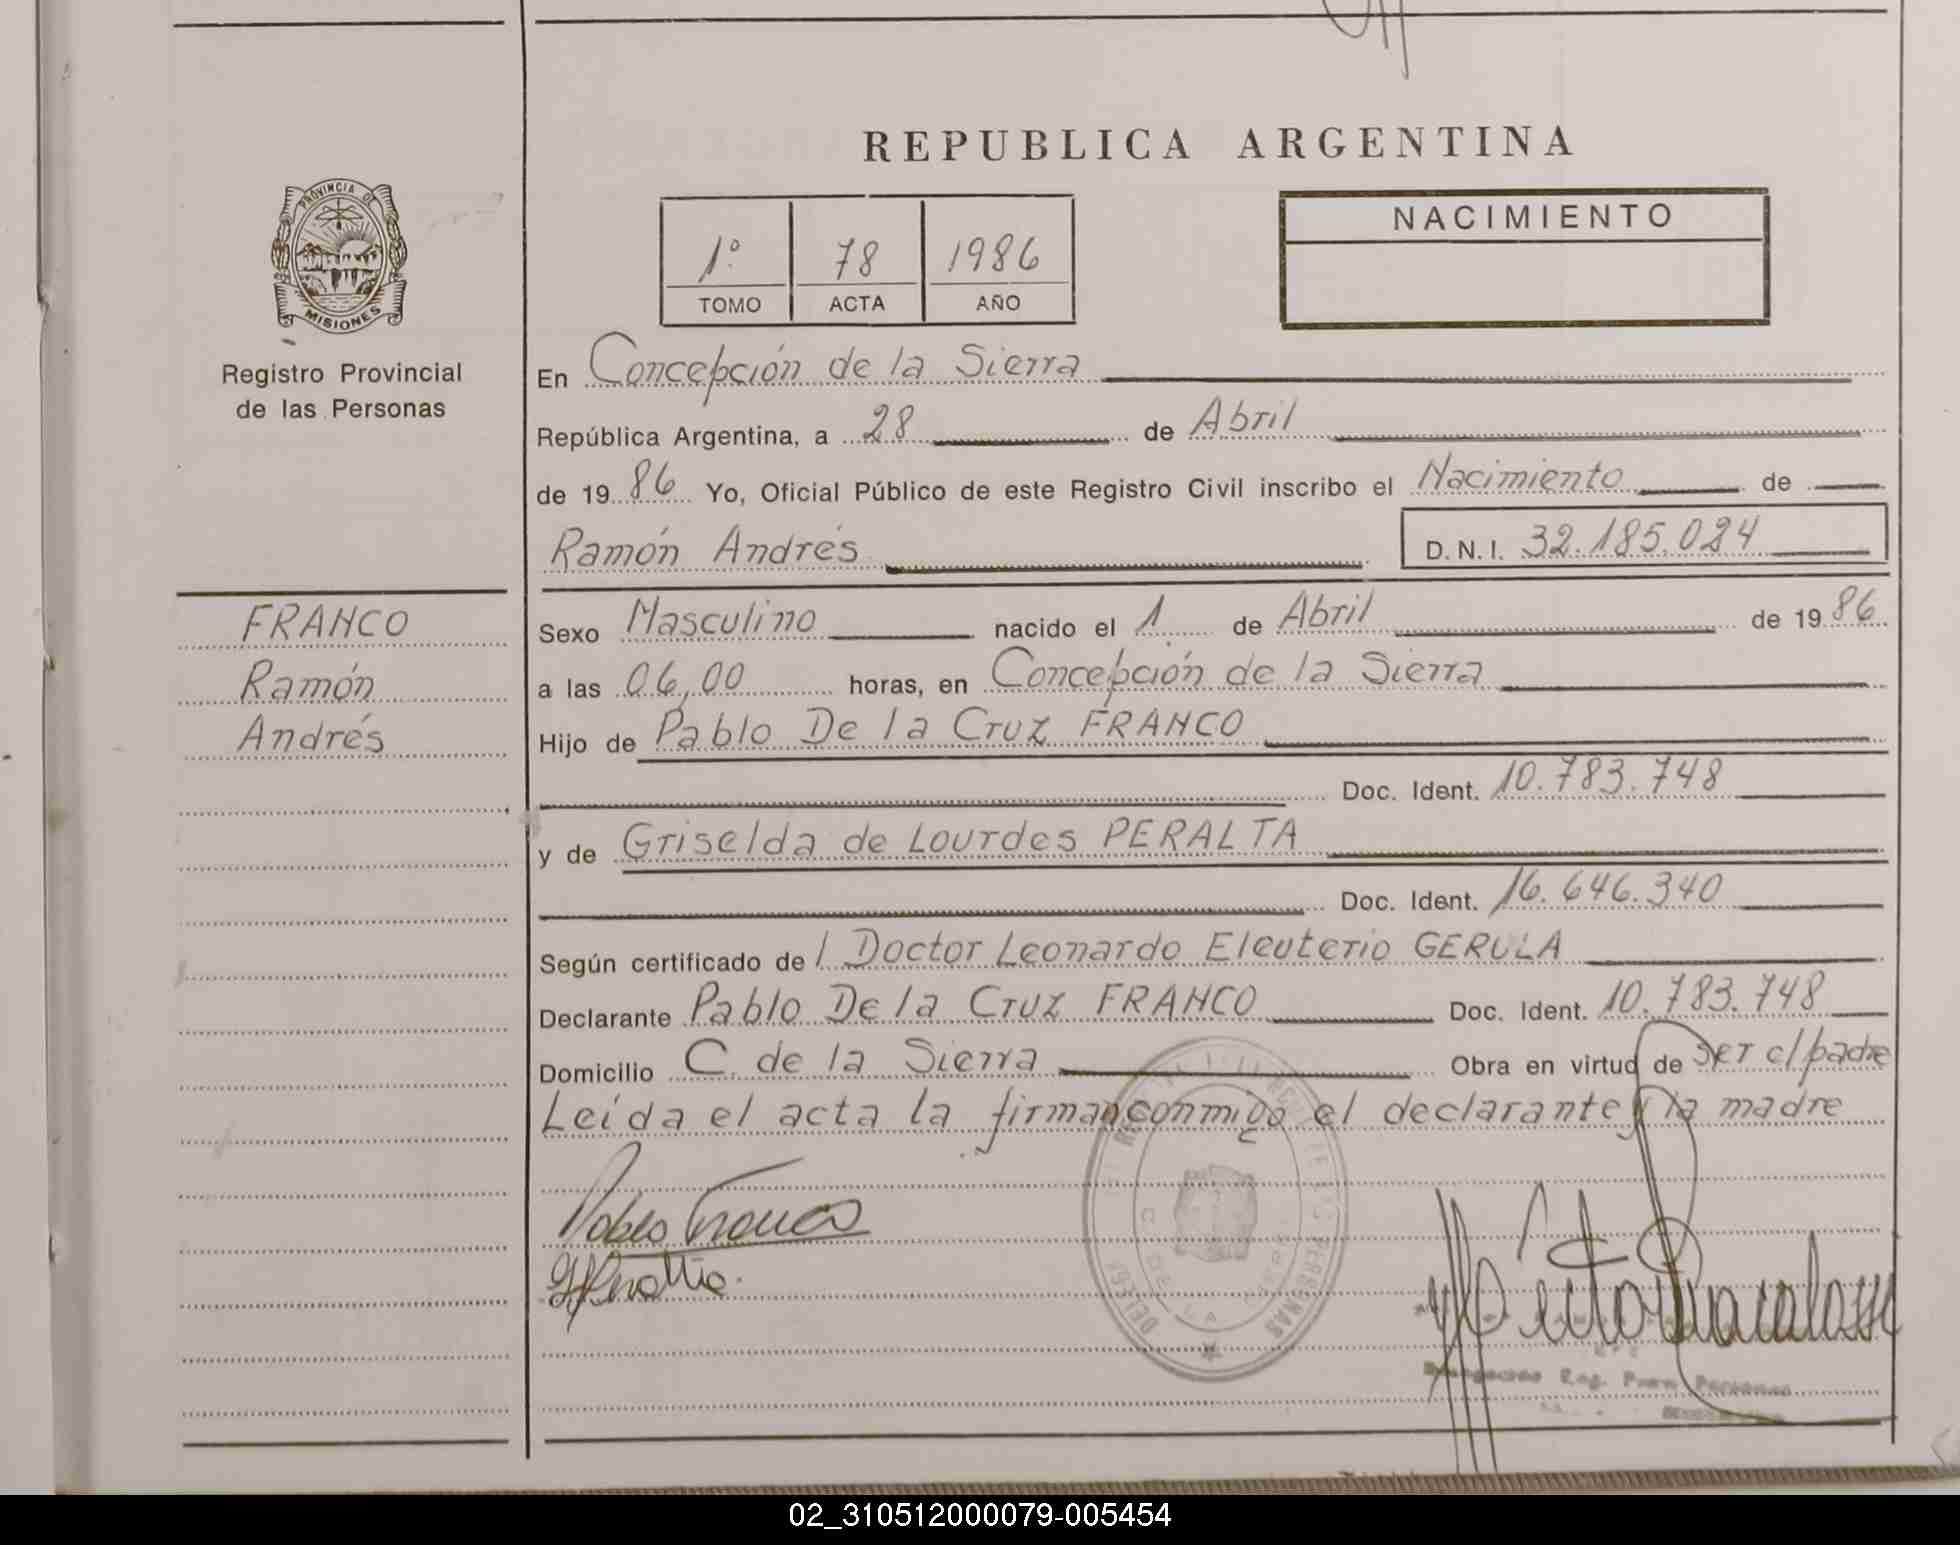 REPUBLICA ARGENTINA
PROVINCIA DE
MISIONES
Registro Provincial
de las Personas
1º 78 1986
TOMO ACTA AÑO
NACIMIENTO
En Concepción de la Sierra
República Argentina, a 28 de Abril
de 1986 Yo, Oficial Público de este Registro Civil inscribo el Nacimiento de
Ramón Andrés D.N.I. 32.185.024
FRANCO
Ramón
Andrés
Sexo Masculino nacido el 1 de Abril de 1986
a las 06,00 horas, en Concepción de la Sierra
Hijo de Pablo De la Cruz FRANCO
Doc. Ident. 10.783.748
y de Griselda de Lourdes PERALTA
Doc. Ident. 16.646.340
Según certificado de l Doctor Leonardo Eleuterio GERULA
Declarante Pablo De la Cruz FRANCO Doc. Ident. 10.783.748
Domicilio C. de la Sierra Obra en virtud de ser el padre
Leída el acta la firman conmigo el declarante y la madre
Pablo Franco
02_310512000079-005454